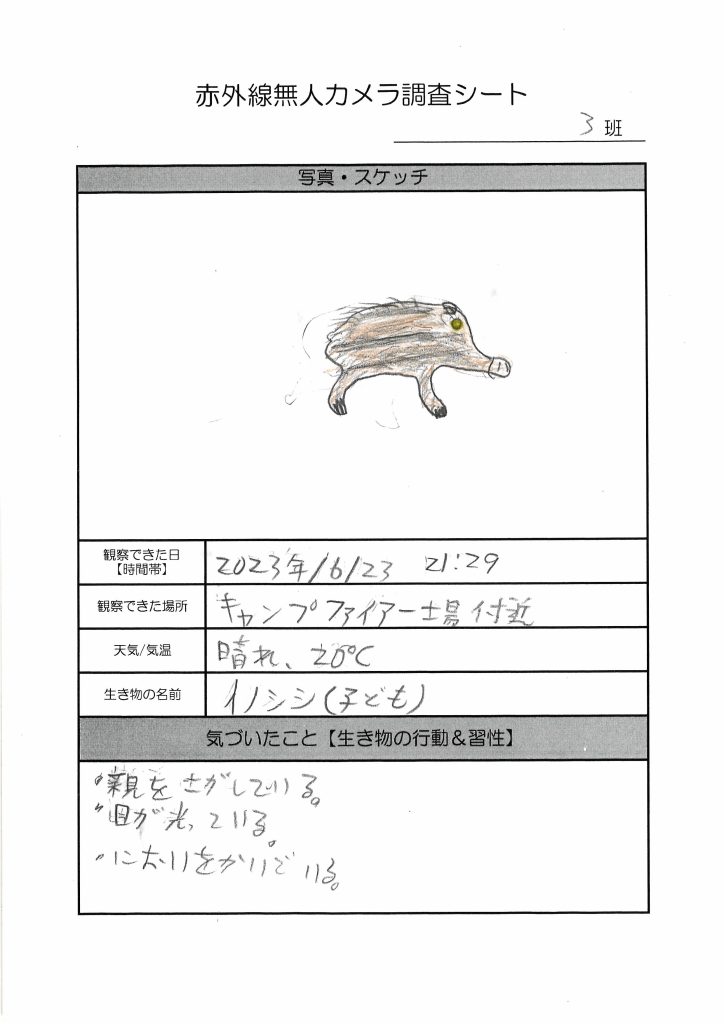 赤外線無人カメラ調査シート
3 班
写真・スケッチ
観察できた日
【時間帯】
2023年/6/23 21:29
観察できた場所
キャンプファイアー場付近
天気/気温
晴れ、20°C
生き物の名前
イノシシ(子ども)
気づいたこと【生き物の行動&習性】
・親をさがしている。
・目が光っている。
・においをかいでいる。